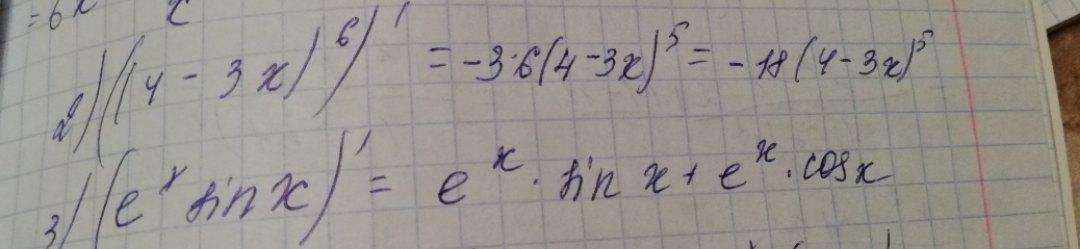 = 6x
2) ((4 - 3x)^6)' = -3·6(4-3x)^5 = -18(4-3x)^5
3) (e^x sin x)' = e^x · sin x + e^x · cos x